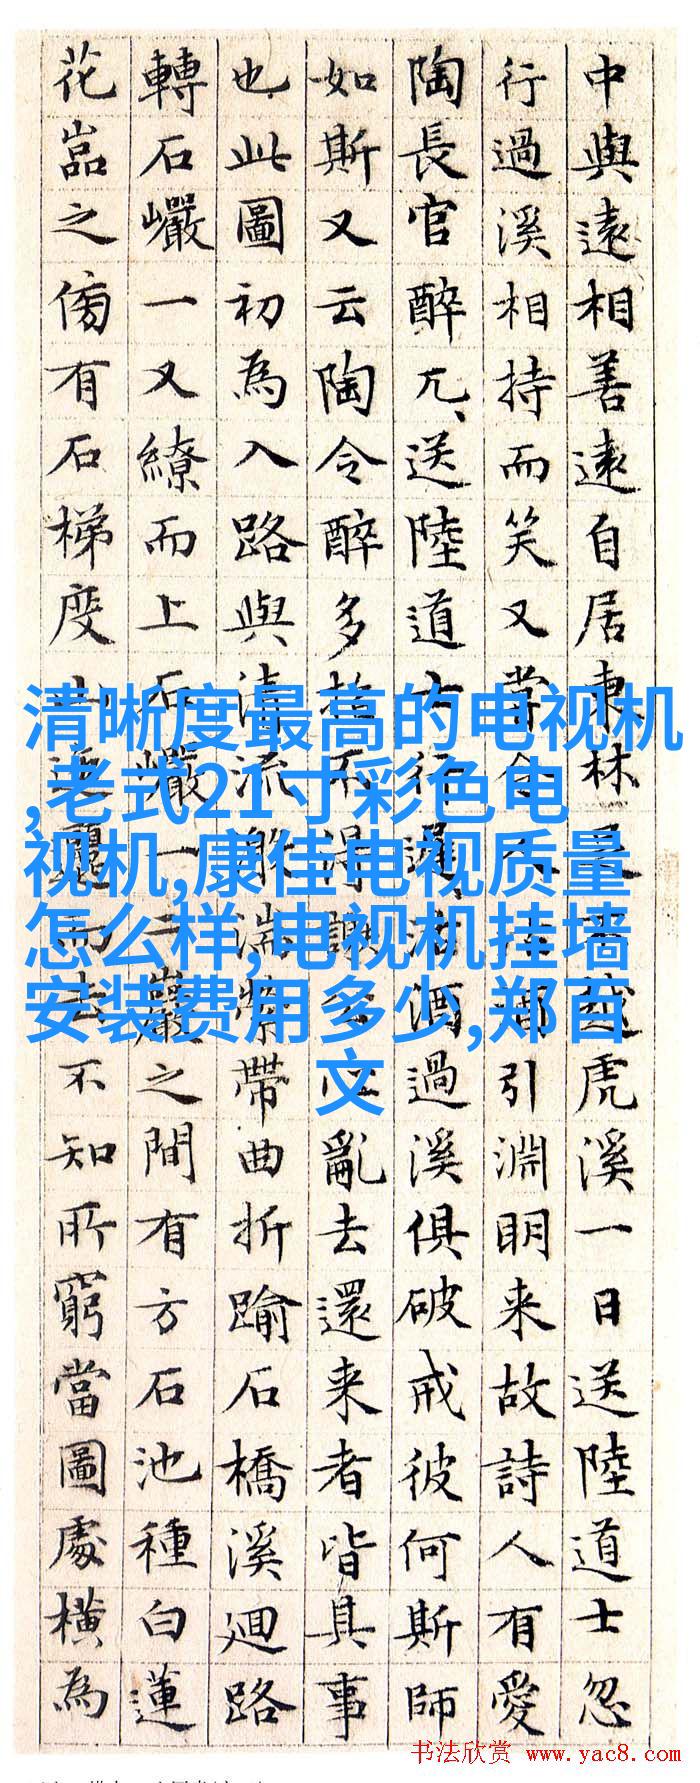 中與遠相善遠自居東林越虎溪一日送陸道士忽
行過溪相持而笑又常令人引淵明来故詩人有愛
陶長官醉兀、送陸道士行遲沽酒過溪俱破戒彼何斯師
如斯又云陶令醉多招不得謝心亂去還来者皆其事
也此圖初為入路與清流湍縈帶曲折踰石橋溪廻路
轉石巗一又繚而上石巗一巖之間有方石池種白蓮
花嵓之傍有石梯度而去不知所窮當圖處橫為
清晰度最高的电视机
,老式21寸彩色电
视机,康佳电视质量
怎么样,电视机挂墙
安装费用多少,郑百
文
书法欣赏 www.yac8.com